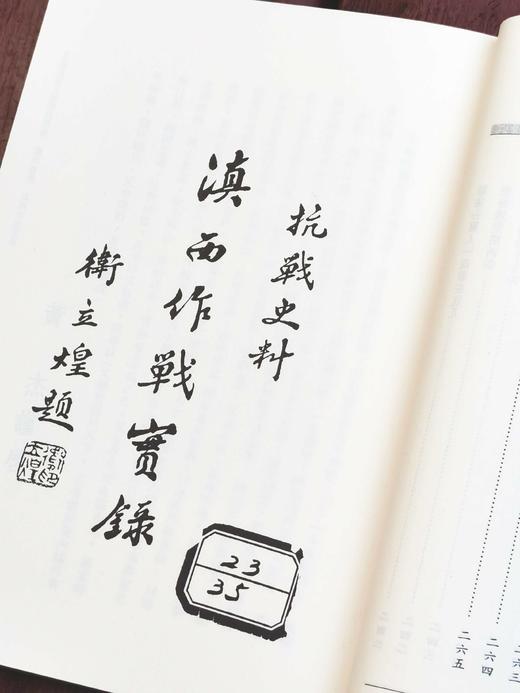 抗戰史料
滇西作戰實錄
衛立煌題
23
35
二六三
二六四
二六五